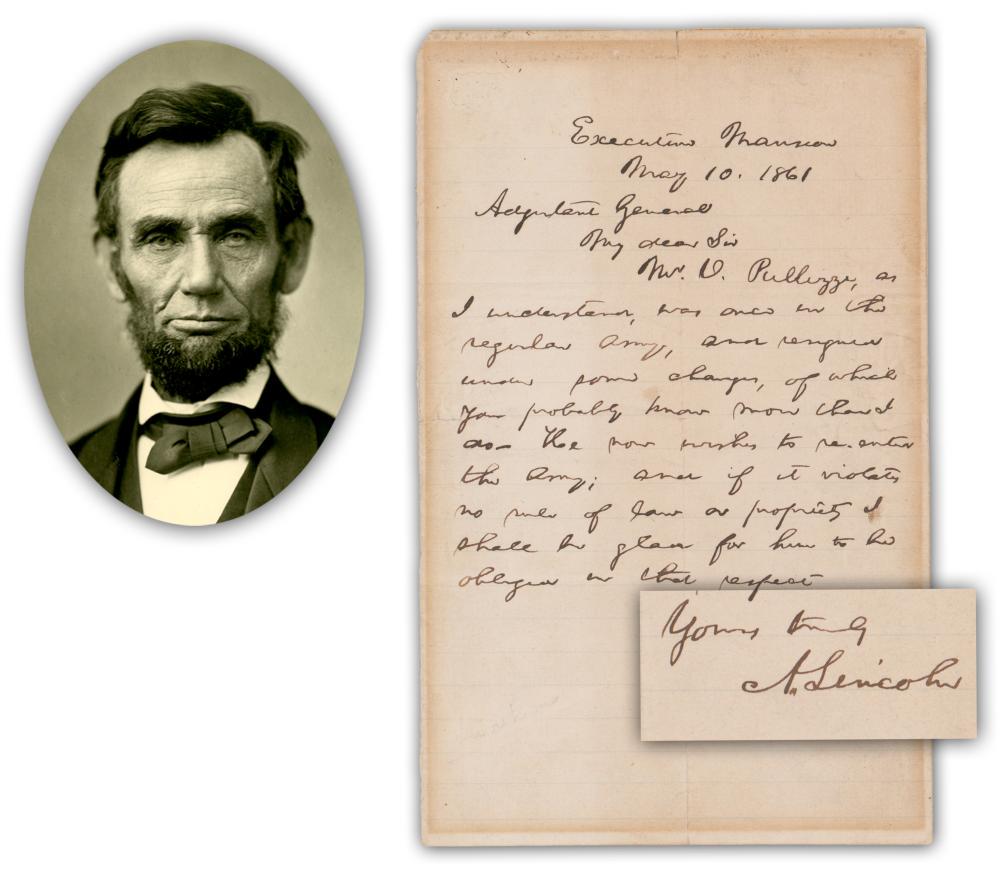 Executive Mansion
May 10. 1861
Adjutant General
My dear Sir
Mr. V. as
I understand, was once in the
regular Army, and resigned
under some charges, of which
you probably know more than I
do— He now wishes to re-enter
the Army; and if it violates
no rule of law or propriety I
shall be glad for him to be
obliged in that respect
Yours truly
A. Lincoln